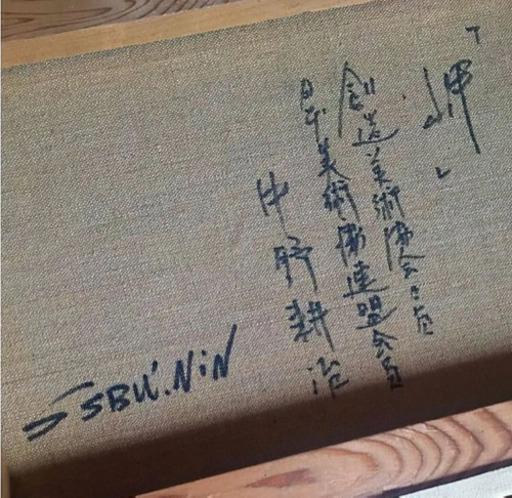 「岬」
創造美術協会会員
日本美術家連盟会員
中野耕治
SBW.NiN